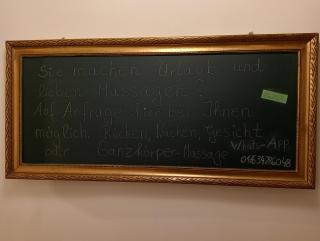 Sie machen Urlaub und
lieben Massagen?
Auf Anfrage hier bei Ihnen
möglich. Rücken, Nacken, Gesicht
oder Ganzkörper-Massage
Whats-App